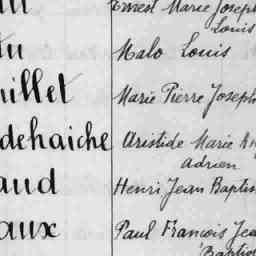 Ernest Marie Joseph
Louis
tu Malo Louis
uillet Marie Pierre Joseph
dehaiche Aristide Marie
Adrien
aud Henri Jean Baptis
aux Paul Francois Jea
Baptis